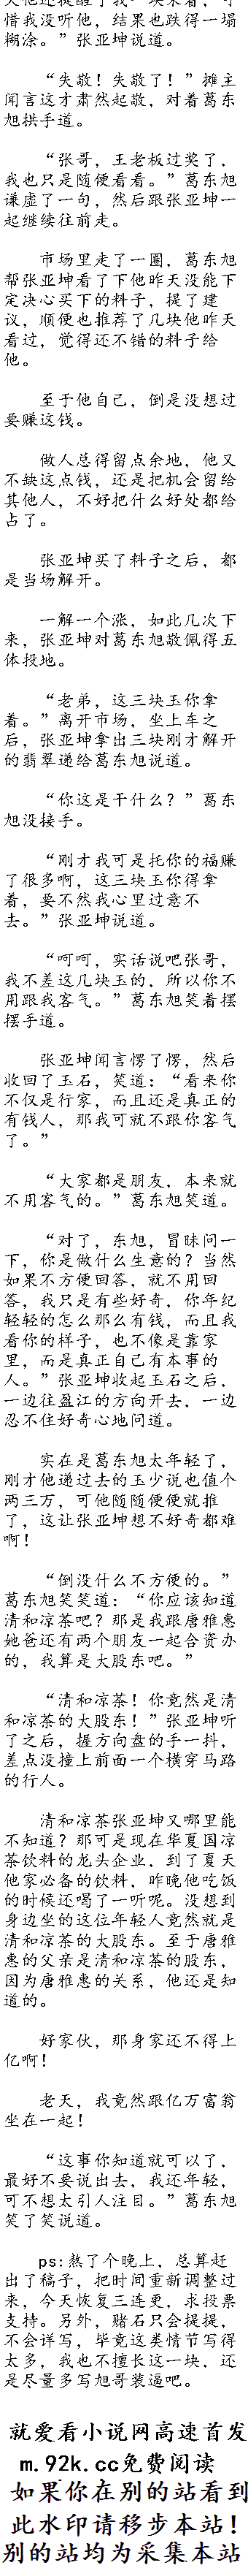 惜我没听他，结果也跌得一塌
糊涂。”张亚坤说道。
“失敬！失敬了！”摊主
闻言这才肃然起敬，对着葛东
旭拱手道。
“张哥，王老板过奖了，
我也只是随便看看。”葛东旭
谦虚了一句，然后跟张亚坤一
起继续往前走。
市场里走了一圈，葛东旭
帮张亚坤看了下他昨天没能下
定决心买下的料子，提了建
议，顺便也推荐了几块他昨天
看过，觉得还不错的料子给
他。
至于他自己，倒是没想过
要赚这钱。
做人总得留点余地，他又
不缺这点钱，还是把机会留给
其他人，不好把什么好处都给
占了。
张亚坤买了料子之后，都
是当场解开。
一解一个涨，如此几次下
来，张亚坤对葛东旭敬佩得五
体投地。
“老弟，这三块玉你拿
着。”离开市场，坐上车之
后，张亚坤拿出三块刚才解开
的翡翠递给葛东旭说道。
“你这是干什么？”葛东
旭没接手。
“刚才我可是托你的福赚
了很多啊，这三块玉你得拿
着，要不然我心里过意不
去。”张亚坤说道。
“呵呵，实话说吧张哥，
我不差这几块玉的，所以你不
用跟我客气。”葛东旭笑着摆
摆手道。
张亚坤闻言愣了愣，然后
收回了玉石，笑道：“看来你
不仅是行家，而且还是真正的
有钱人，那我可就不跟你客气
了。”
“大家都是朋友，本来就
不用客气的。”葛东旭笑道。
“对了，东旭，冒昧问一
下，你是做什么生意的？当然
如果不方便回答，就不用回
答，我只是有些好奇，你年纪
轻轻的怎么那么有钱，而且我
看你的样子，也不像是靠家
里，而是真正自己有本事的
人。”张亚坤收起玉石之后，
一边往盈江的方向开去，一边
忍不住好奇心地问道。
实在是葛东旭太年轻了，
刚才他递过去的玉少说也值个
两三万，可他随随便便就推
了，这让张亚坤想不好奇都难
啊！
“倒没什么不方便的。”
葛东旭笑笑道：“你应该知道
清和凉茶吧？那是我跟唐雅惠
她爸还有两个朋友一起合资办
的，我算是大股东吧。”
“清和凉茶！你竟然是清
和凉茶的大股东！”张亚坤听
了之后，握方向盘的手一抖，
差点没撞上前面一个横穿马路
的行人。
清和凉茶张亚坤又哪里能
不知道？那可是现在华夏国凉
茶饮料的龙头企业，到了夏天
他家必备的饮料，昨晚他吃饭
的时候还喝了一听呢。没想到
身边坐的这位年轻人竟然就是
清和凉茶的大股东。至于唐雅
惠的父亲是清和凉茶的股东，
因为唐雅惠的关系，他还是知
道的。
好家伙，那身家还不得上
亿啊！
老天，我竟然跟亿万富翁
坐在一起！
“这事你知道就可以了，
最好不要说出去，我还年轻，
可不想太引人注目。”葛东旭
笑了笑说道。
ps:熬了个晚上，总算赶
出了稿子，把时间重新调整过
来，今天恢复三连更，求投票
支持。另外，赌石只会提提，
不会详写，毕竟这类情节写得
太多，我也不擅长这一块，还
是尽量多写旭哥装逼吧。
就爱看小说网高速首发
m.92k.cc免费阅读
如果你在别的站看到
此水印请移步本站！
别的站均为采集本站